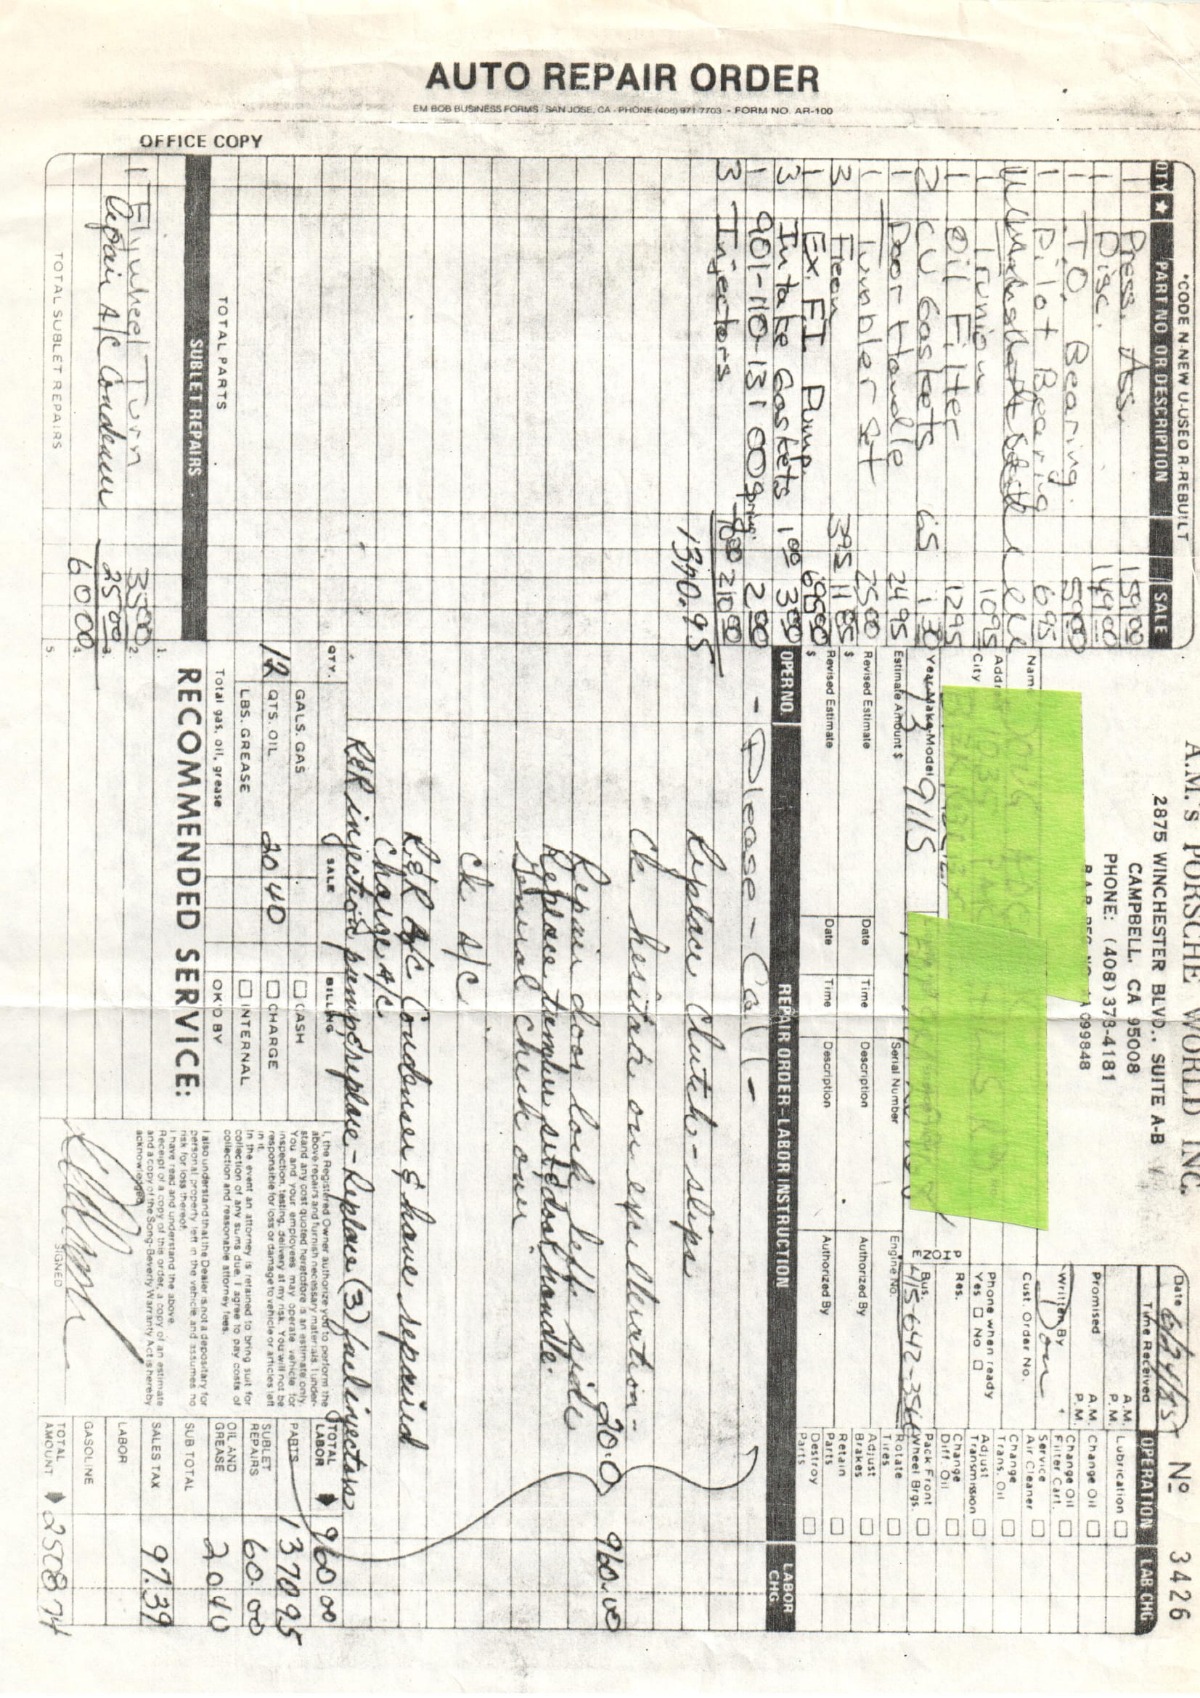 AUTO REPAIR ORDER
EM BOB BUSINESS FORMS / SAN JOSE, CA - PHONE (408) 971-7703 - FORM NO. AR-100
OFFICE COPY
A.M.'s PORSCHE WORLD INC.
2875 WINCHESTER BLVD., SUITE A-B
CAMPBELL, CA 95008
PHONE: (408) 378-4181
099848
No 3426
Date 6/24/85
Time Received A.M. P.M.
Promised A.M. P.M.
Written By
Cust. Order No.
Phone when ready
Yes ☐ No ☐
PHONE
Res.
Bus.
Name
City
Year-Make-Model
73 911S
Serial Number
Engine No.
Estimate Amount $
Revised Estimate $ Date Time Description Authorized By
Revised Estimate $ Date Time Description Authorized By
OPERATION LAB CHG
Lubrication ☐
Change Oil ☐
Change Oil Filter Cart. ☐
Service Air Cleaner ☐
Change Trans. Oil ☐
Adjust Transmission ☐
Change Diff. Oil ☐
Pack Front Wheel Brgs. ☐
Rotate Tires ☐
Adjust Brakes ☐
Retain Parts ☐
Destroy Parts ☐
*CODE N-NEW U-USED R-REBUILT
QTY ★ PART NO. OR DESCRIPTION SALE
1 Press. Ass. 159.00
1 Disc. 149.00
1 T.O. Bearing. 59.00
1 Pilot Bearing 6.95
1 1095
1 Oil Filter 1295
2 CV Gaskets 65 1.30
1 Door Handle 2495
1 Tumbler set 2500
3 Freon 395 11.85
1 Ex. F.I. Pump. 698.00
3 Intake Gaskets 1.00 3.00
1 901-110-131 00 2.00
3 Injectors 70.00 210.00
1370.95
TOTAL PARTS
SUBLET REPAIRS
1 Flywheel Turn 35.00
Repair A/C Condenser 25.00
60.00
TOTAL SUBLET REPAIRS
OPER NO. REPAIR ORDER-LABOR INSTRUCTION LABOR CHG
- Please - Call -
Replace Clutch - slips
Ck. hesitate on
Repair door lock left side 20.0 960.00
Replace tumbler set door handle.
General check over
Ck A/C
R&R A/C Condenser & have repaired
Charge A/C
R&R injection pump replace - Replace (3) fuel injectors
QTY. SALE BILLING
GALS. GAS ☐ CASH
12 QTS. OIL 20 40 ☐ CHARGE
LBS. GREASE ☐ INTERNAL
Total gas, oil, grease OK'D BY
RECOMMENDED SERVICE:
1.
2.
3.
4.
5.
I, the Registered Owner authorize you to perform the
above repairs and furnish necessary materials. I under-
stand any cost quoted heretofore is an estimate only.
You and your employees may operate vehicle for
inspection, testing, delivery at my risk. You will not be
responsible for loss or damage to vehicle or articles left
in it.
In the event an attorney is retained to bring suit for
collection of any sums due, I agree to pay costs of
collection and reasonable attorney fees.
I also understand that the Dealer is not a depositary for
personal property left in the vehicle and assumes no
risk for loss thereof.
I have read and understand the above.
Receipt of a copy of this order, a copy of an estimate
and a copy of the Song-Beverly Warranty Act is hereby
acknowledged.
SIGNED
TOTAL LABOR 960.00
PARTS 1370 95
SUBLET REPAIRS 60.00
OIL AND GREASE 20 40
SUB TOTAL
SALES TAX 97.39
LABOR
GASOLINE
TOTAL AMOUNT 2508 74